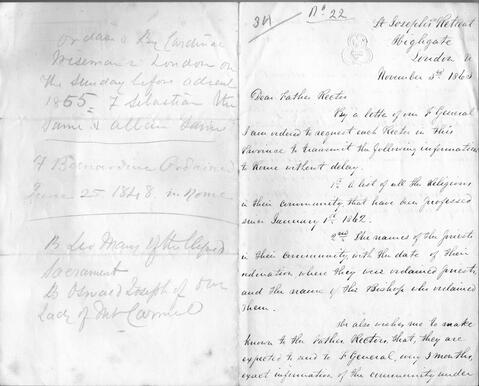 ordained by Cardinal
Wiseman London on
the Sunday before advent
1855 F Sebastian the
same & Alban same
F Bernardine Ordained
June 25 1848 in Rome
B Leo Mary of the
Sacrament
B Oswald Joseph of Our
Lady of Mt Carmel
No 22
St Joseph's Retreat
Highgate
London N
November 3rd
Dear Father Rector
By a letter of our F General
I am ordered to request each Rector in this
Province to transmit the following information
to Rome without delay.
1st A list of all the Religious
in their community, that have been professed
since January 1st 1862.
2nd The names of the priests
in their community, with the date of their
ordination where they were ordained priests,
and the name of the Bishop who ordained
them.
He also wishes me to make
known to the Father Rectors, that, they are
expected to send to F General, every 3 months,
exact information of the community under